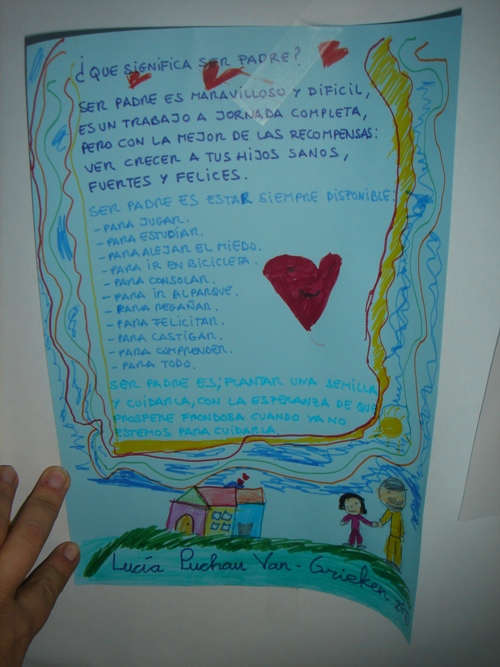 ¿QUE SIGNIFICA SER PADRE?
SER PADRE ES MARAVILLOSO Y DIFICIL,
ES UN TRABAJO A JORNADA COMPLETA,
PERO CON LA MEJOR DE LAS RECOMPENSAS:
VER CRECER A TUS HIJOS SANOS,
FUERTES Y FELICES.
SER PADRE ES ESTAR SIEMPRE DISPONIBLE:
-PARA JUGAR.
-PARA ESTUDIAR.
-PARA ALEJAR EL MIEDO.
-PARA IR EN BICICLETA.
-PARA CONSOLAR.
-PARA IR AL PARQUE.
-PARA REGAÑAR.
-PARA FELICITAR.
-PARA CASTIGAR.
-PARA COMPRENDER.
-PARA TODO.
SER PADRE ES; PLANTAR UNA SEMILLA
Y CUIDARLA, CON LA ESPERANZA DE QUE
PROSPERE FRONDOSA CUANDO YA NO
ESTEMOS PARA CUIDARLA.
Lucía Puchau Van-Grieken